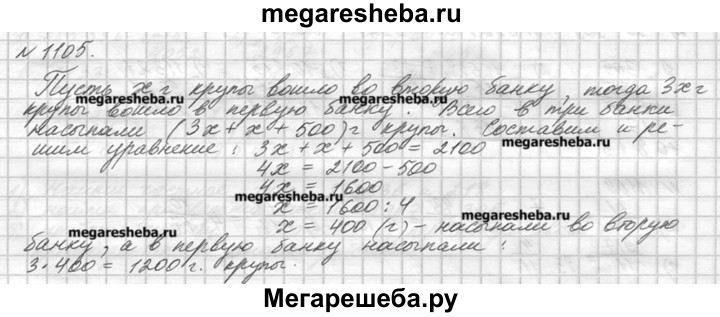 megaresheba.ru
N 1105.
Пусть x г крупы вошло во вторую банку, тогда 3x г
megaresheba.ru
крупы вошло в первую банку. Всего в три банки
насыпали (3x + x + 500) г крупы. Составим и ре-
шим уравнение: 3x + x + 500 = 2100
megaresheba.ru
4x = 2100 - 500
4x = 1600
megaresheba.ru
x = 1600 : 4
megaresheba.ru
x = 400 (г) - насыпали во вторую
megaresheba.ru
банку, а в первую банку насыпали:
3 · 400 = 1200 г. крупы.
Мегарешеба.ру